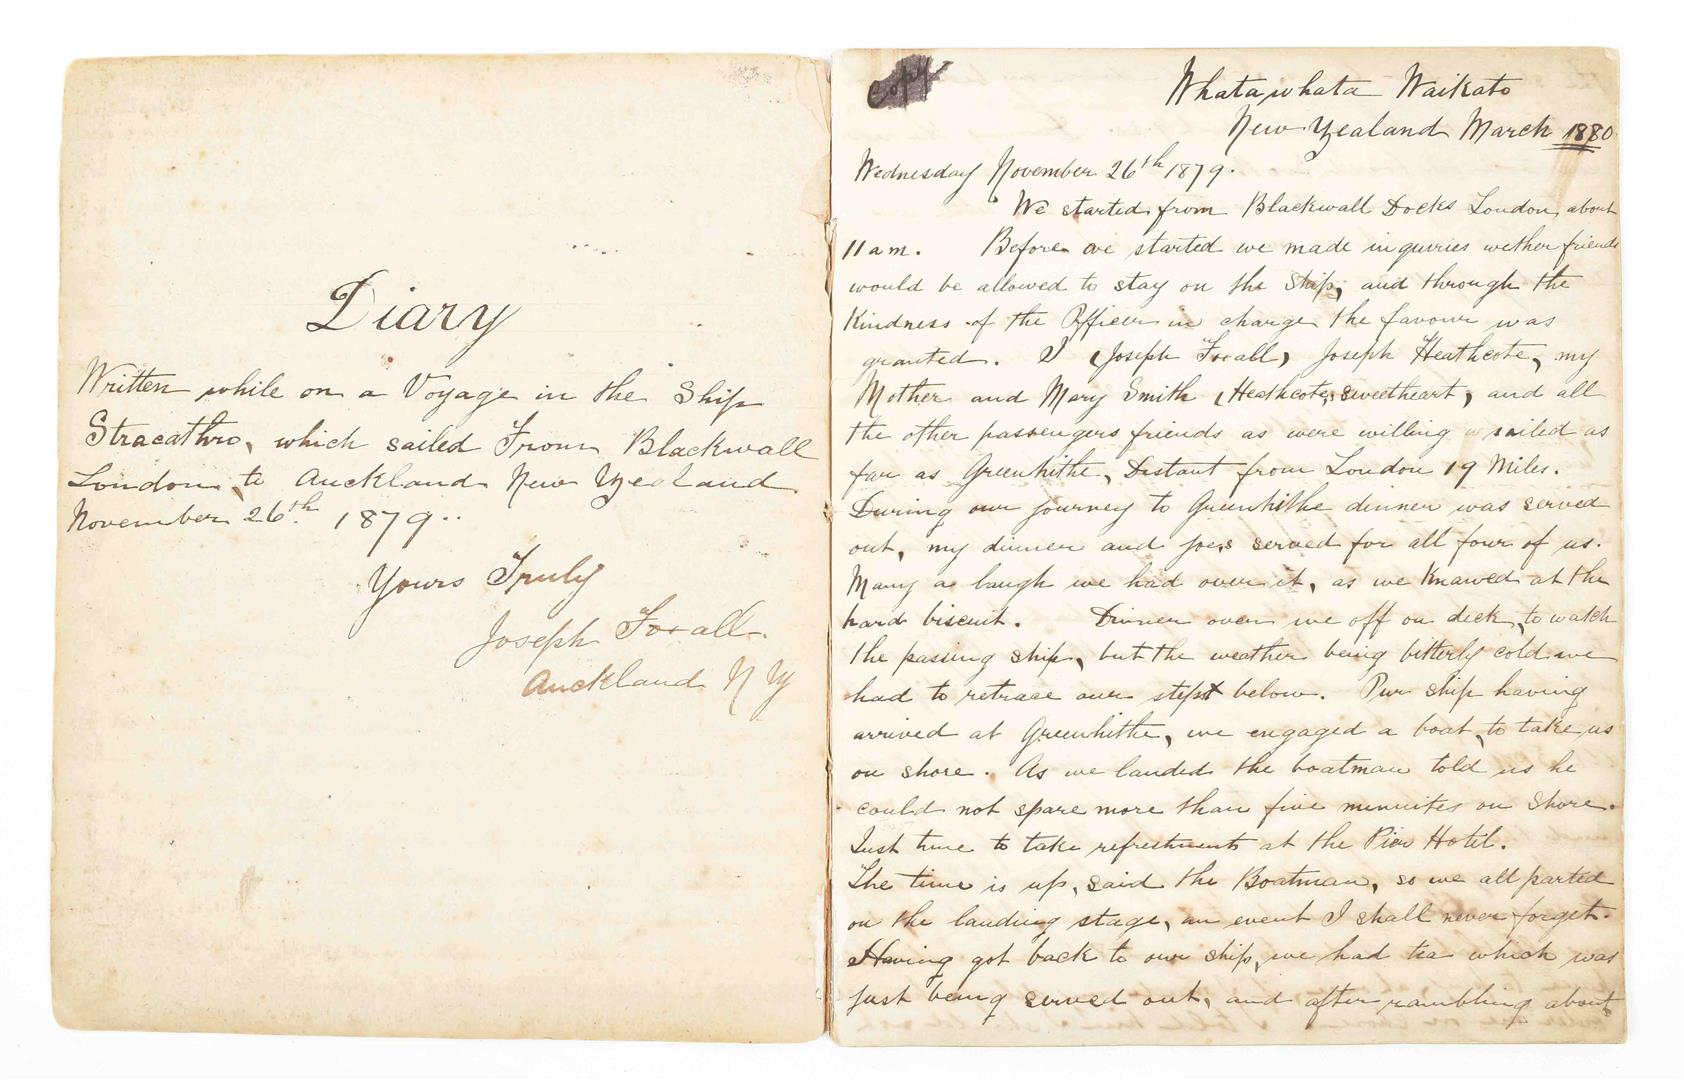 Diary
Written while on a Voyage in the Ship
Stracathro, which sailed From Blackwall
London, to Auckland New Zealand
November 26th. 1879..
Yours Truly
Joseph Foxall.
Auckland N Z
Copy
Whatawhata Waikato
New Zealand March 1880
Wednesday November 26th 1879.
We started from Blackwall Docks London, about
11 am. Before we started we made inquiries wether friends
would be allowed to stay on the Ship, and through the
Kindness of the Officer in charge the favour was
granted. I (Joseph Foxall) Joseph Heathcote, my
Mother and Mary Smith (Heathcotes, sweetheart, and all
the other passengers friends as were willing sailed as
far as Greenhithe, Distant from London 19 Miles.
During our journey to Greenhithe dinner was served
out, my dinner and Joes served for all four of us.
Many a laugh we had over it, as we Knawed at the
hard biscuit. Dinner over we off on deck, to watch
the passing ship, but the weather being bitterly cold we
had to retrace our steps below. Our ship having
arrived at Greenhithe, we engaged a boat, to take us
on shore. As we landed the boatman told us he
could not spare more than five minnites on Shore.
Just time to take refreshments at the Pier Hotel.
The time is up, said the Boatman, so we all parted
on the landing stage, an event I shall never forget.
Having got back to our ship, we had tea which was
just being served out, and after rambling about